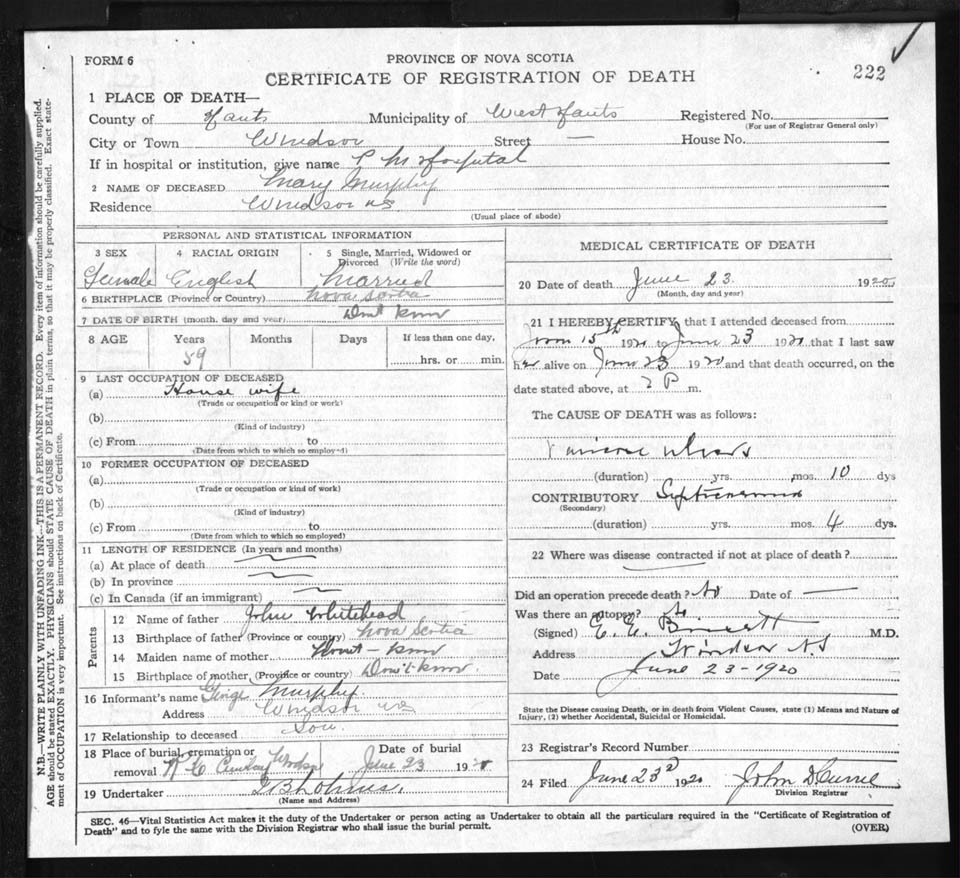 FORM 6
PROVINCE OF NOVA SCOTIA
CERTIFICATE OF REGISTRATION OF DEATH
222
1 PLACE OF DEATH—
County of Hants Municipality of West Hants Registered No.
(For use of Registrar General only)
City or Town Windsor Street — House No.
If in hospital or institution, give name P M Hospital
2 NAME OF DECEASED Mary Murphy
Residence Windsor NS
(Usual place of abode)
PERSONAL AND STATISTICAL INFORMATION
3 SEX 4 RACIAL ORIGIN 5 Single, Married, Widowed or Divorced (Write the word)
Female English Married
6 BIRTHPLACE (Province or Country) Nova Scotia
7 DATE OF BIRTH (month, day and year) Don't know
8 AGE Years Months Days If less than one day,
59 hrs. or min.
9 LAST OCCUPATION OF DECEASED
(a) House wife
(Trade or occupation or kind or work)
(b)
(Kind of industry)
(c) From to
(Date from which to which so employed)
10 FORMER OCCUPATION OF DECEASED
(a)
(Trade or occupation or kind of work)
(b)
(Kind of industry)
(c) From to
(Date from which to which so employed)
11 LENGTH OF RESIDENCE (In years and months)
(a) At place of death
(b) In province
(c) In Canada (if an immigrant)
Parents
12 Name of father John Whitehead
13 Birthplace of father (Province or country) Nova Scotia
14 Maiden name of mother Don't - know
15 Birthplace of mother (Province or country) Don't know
16 Informant's name George Murphy
Address Windsor NS
17 Relationship to deceased Son
18 Place of burial, cremation or removal R C Windsor Date of burial June 23 19
19 Undertaker
(Name and Address)
MEDICAL CERTIFICATE OF DEATH
20 Date of death June 23 1920
(Month, day and year)
21 I HEREBY CERTIFY, that I attended deceased from
15th 1920 to June 23 1920 that I last saw
her alive on June 23 1920 and that death occurred, on the
date stated above, at 2 P m.
The CAUSE OF DEATH was as follows:
(duration) yrs. mos. 10 dys
CONTRIBUTORY
(Secondary)
(duration) yrs. mos. 4 dys.
22 Where was disease contracted if not at place of death?
Did an operation precede death? No Date of —
Was there an autopsy? No
(Signed) E. E. M.D.
Address Windsor N.S
Date June 23 - 1920
State the Disease causing Death, or in death from Violent Causes, state (1) Means and Nature of
Injury, (2) whether Accidental, Suicidal or Homicidal.
23 Registrar's Record Number
24 Filed June 23d 1920 John D Currie
Division Registrar
SEC. 46—Vital Statistics Act makes it the duty of the Undertaker or person acting as Undertaker to obtain all the particulars required in the "Certificate of Registration of
Death" and to fyle the same with the Division Registrar who shall issue the burial permit.
(OVER)
N.B.—WRITE PLAINLY WITH UNFADING INK—THIS IS A PERMANENT RECORD. Every item of information should be carefully supplied.
AGE should be stated EXACTLY. PHYSICIANS should STATE CAUSE OF DEATH in plain terms, so that it may be properly classified. Exact statement
of OCCUPATION is very important. See instructions on back of Certificate.